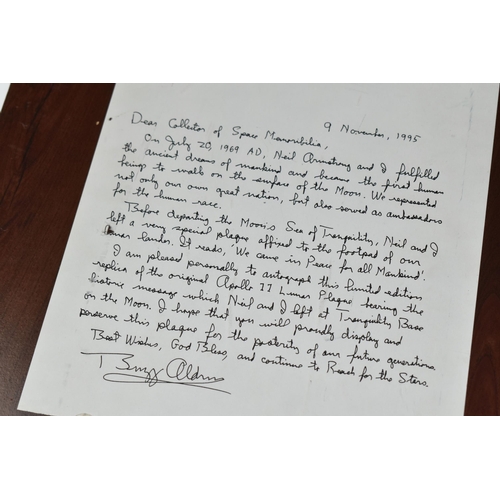 9 November, 1995
Dear Collector of Space Memoribilia,
On July 20, 1969 AD, Neil Armstrong and I fulfilled
the ancient dreams of mankind and became the first human
beings to walk on the surface of the Moon. We represented
not only our own great nation, but also served as ambassadors
for the human race.
Before departing the Moon's Sea of Tranquility, Neil and I
left a very special plaque affixed to the footpad of our
lunar lander. It reads, 'We came in Peace for all Mankind'.
I am pleased personally to autograph this limited edition
replica of the original Apollo 11 Lunar Plaque bearing the
historic message which Neil and I left at Tranquility Base
on the Moon. I hope that you will proudly display and
preserve this plaque for the posterity of our future generations.
Best Wishes, God Bless, and continue to Reach for the Stars.
Buzz Aldrin